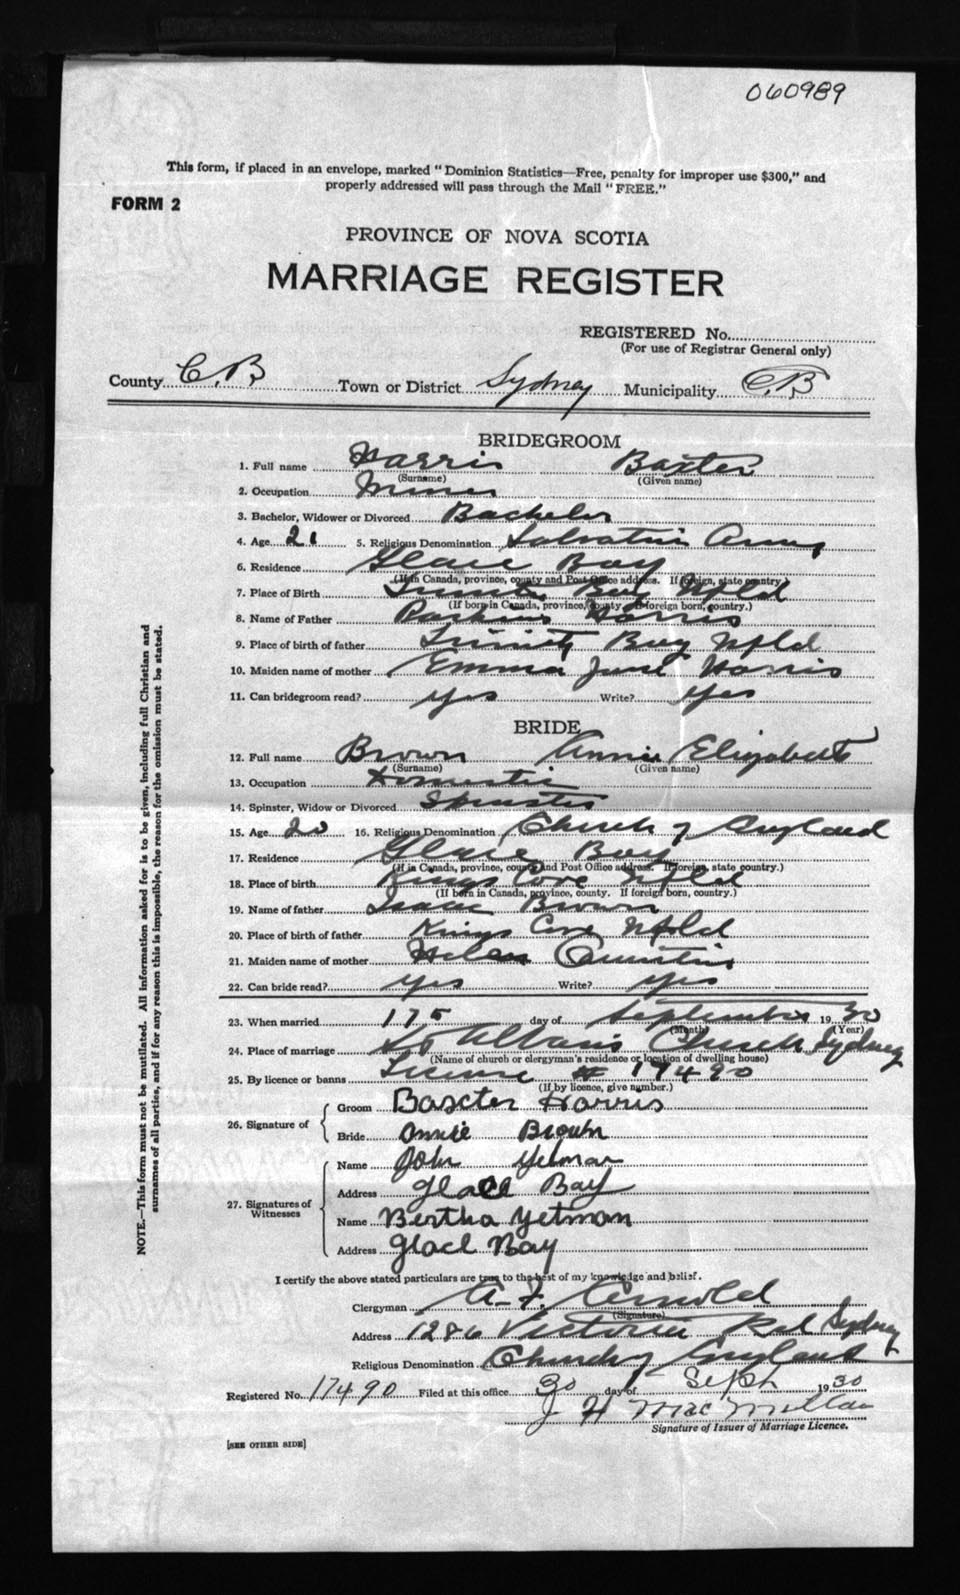 060989
This form, if placed in an envelope, marked "Dominion Statistics—Free, penalty for improper use $300," and
properly addressed will pass through the Mail "FREE."
FORM 2
PROVINCE OF NOVA SCOTIA
MARRIAGE REGISTER
REGISTERED No.
(For use of Registrar General only)
County C.B Town or District Sydney Municipality C.B
BRIDEGROOM
1. Full name Harris Baxter
(Surname) (Given name)
2. Occupation Miner
3. Bachelor, Widower or Divorced Bachelor
4. Age 21 5. Religious Denomination Salvation Army
6. Residence Glace Bay
(If in Canada, province, county and Post Office address. If foreign, state country
7. Place of Birth Trinity Bay Nfld
(If born in Canada, province, county. If foreign born, country.)
8. Name of Father Harris
9. Place of birth of father Trinity Bay Nfld
10. Maiden name of mother Emma Jane Harris
11. Can bridegroom read? yes Write? yes
BRIDE
12. Full name Brown Annie Elizabeth
(Surname) (Given name)
13. Occupation Domestic
14. Spinster, Widow or Divorced Spinster
15. Age 20 16. Religious Denomination Church of England
17. Residence Glace Bay
(If in Canada, province, county and Post Office address. If foreign, state country.)
18. Place of birth Kings Cove Nfld
(If born in Canada, province, county. If foreign born, country.)
19. Name of father Isaac Brown
20. Place of birth of father Kings Cove Nfld
21. Maiden name of mother Helen
22. Can bride read? yes Write? yes
23. When married 17 day of September 1930
(Month) (Year)
24. Place of marriage St Albans Church Sydney
(Name of church or clergyman's residence or location of dwelling house)
25. By licence or banns License # 17490
(If by licence, give number.)
26. Signature of
Groom Baxter Harris
Bride Annie Brown
27. Signatures of Witnesses
Name John Yetman
Address Glace Bay
Name Bertha Yetman
Address Glace Bay
I certify the above stated particulars are true to the best of my knowledge and belief.
Clergyman A. F. Arnold
(Signature)
Address 1286 Victoria Rd Sydney
Religious Denomination Church of England
Registered No. 17490 Filed at this office 30 day of Sept 1930
J H MacMillan
Signature of Issuer of Marriage Licence.
[SEE OTHER SIDE]
NOTE.—This form must not be mutilated. All information asked for is to be given, including full Christian and
surnames of all parties, and if for any reason this is impossible, the reason for the omission must be stated.